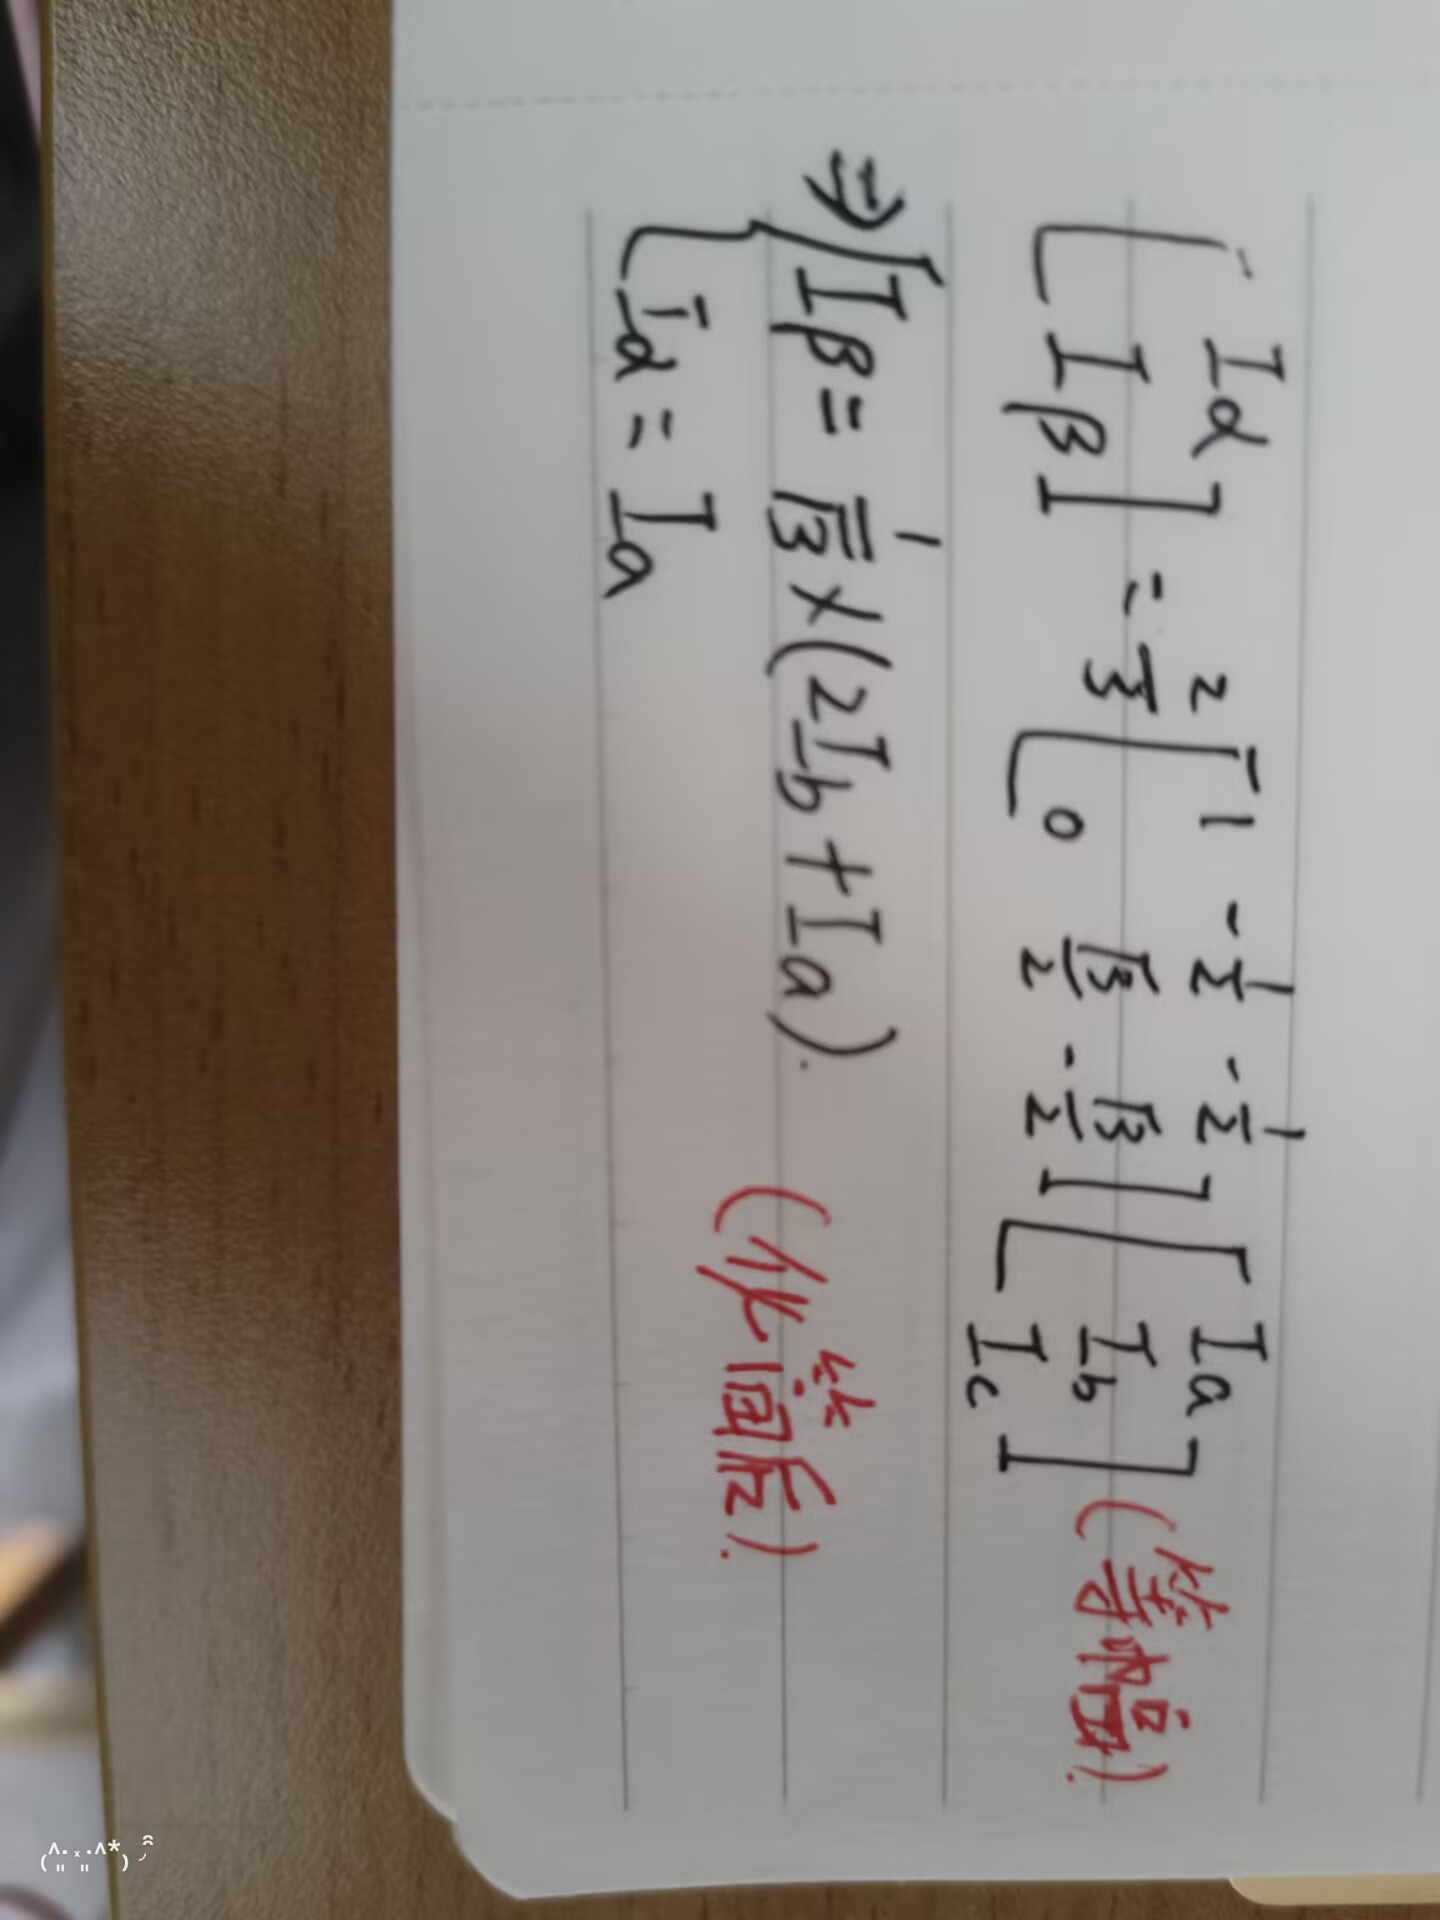 [Iα Iβ] = 2/3 [1 -1/2 -1/2 0 √3/2 -√3/2] [Ia Ib Ic] (等幅).
⇒ { Iβ = 1/√3 × (2Ib + Ia).
Iα = Ia (化简后).
(^・ₓ・^*) ⌒